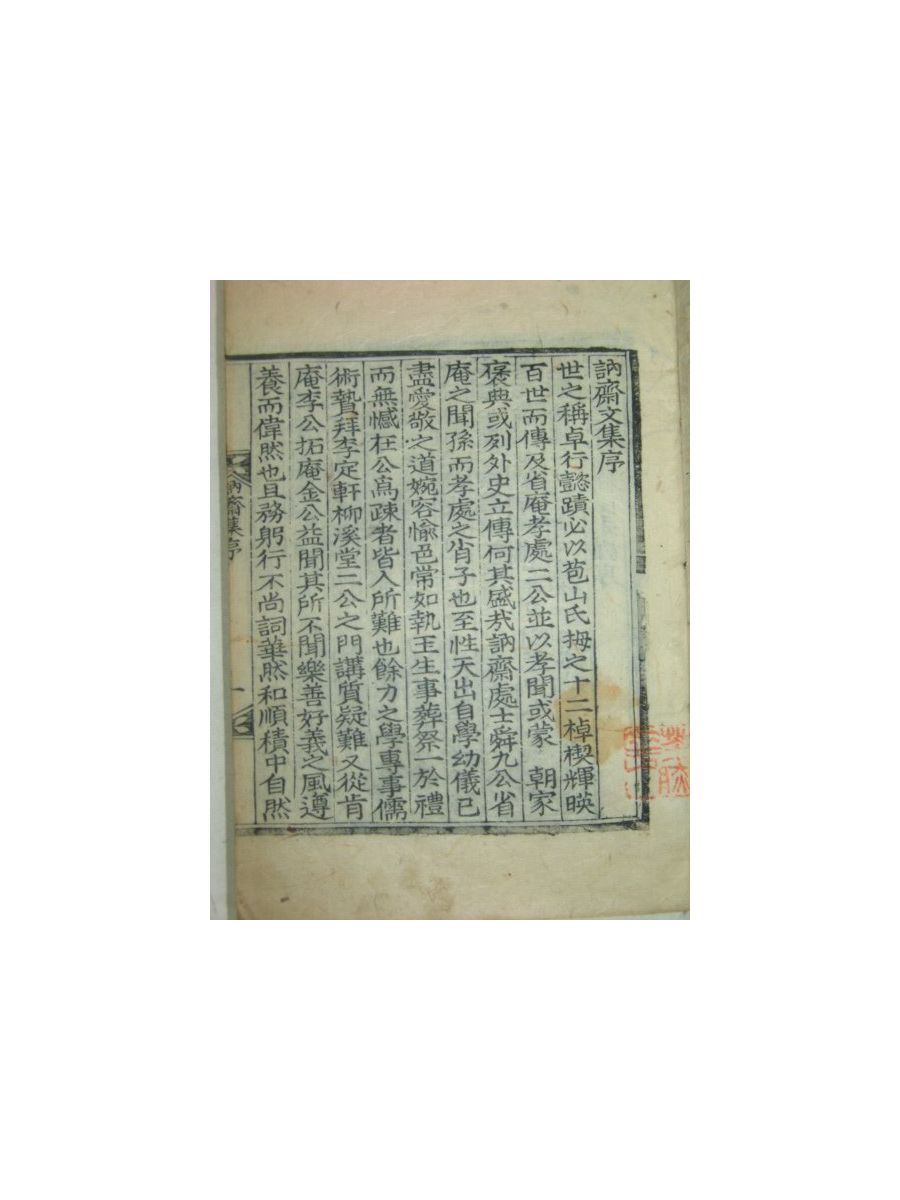 訥齋文集序
世之稱卓行懿蹟必以苞山氏拇之十二棹楔輝暎
百世而傳及省庵孝處二公並以孝聞或蒙　朝家
褒典或列外史立傳何其盛哉訥齋處士舜九公省
庵之聞孫而孝處之肖子也至性天出自學幼儀已
盡愛敬之道婉容愉色常如執玉生事葬祭一於禮
而無憾在公爲疎者皆人所難也餘力之學專事儒
術贄拜李定軒柳溪堂二公之門講質疑難又從肯
庵李公拓庵金公益聞其所不聞樂善好義之風遵
養而偉然也且務躬行不尚詞華然和順積中自然
訥齋集序
一